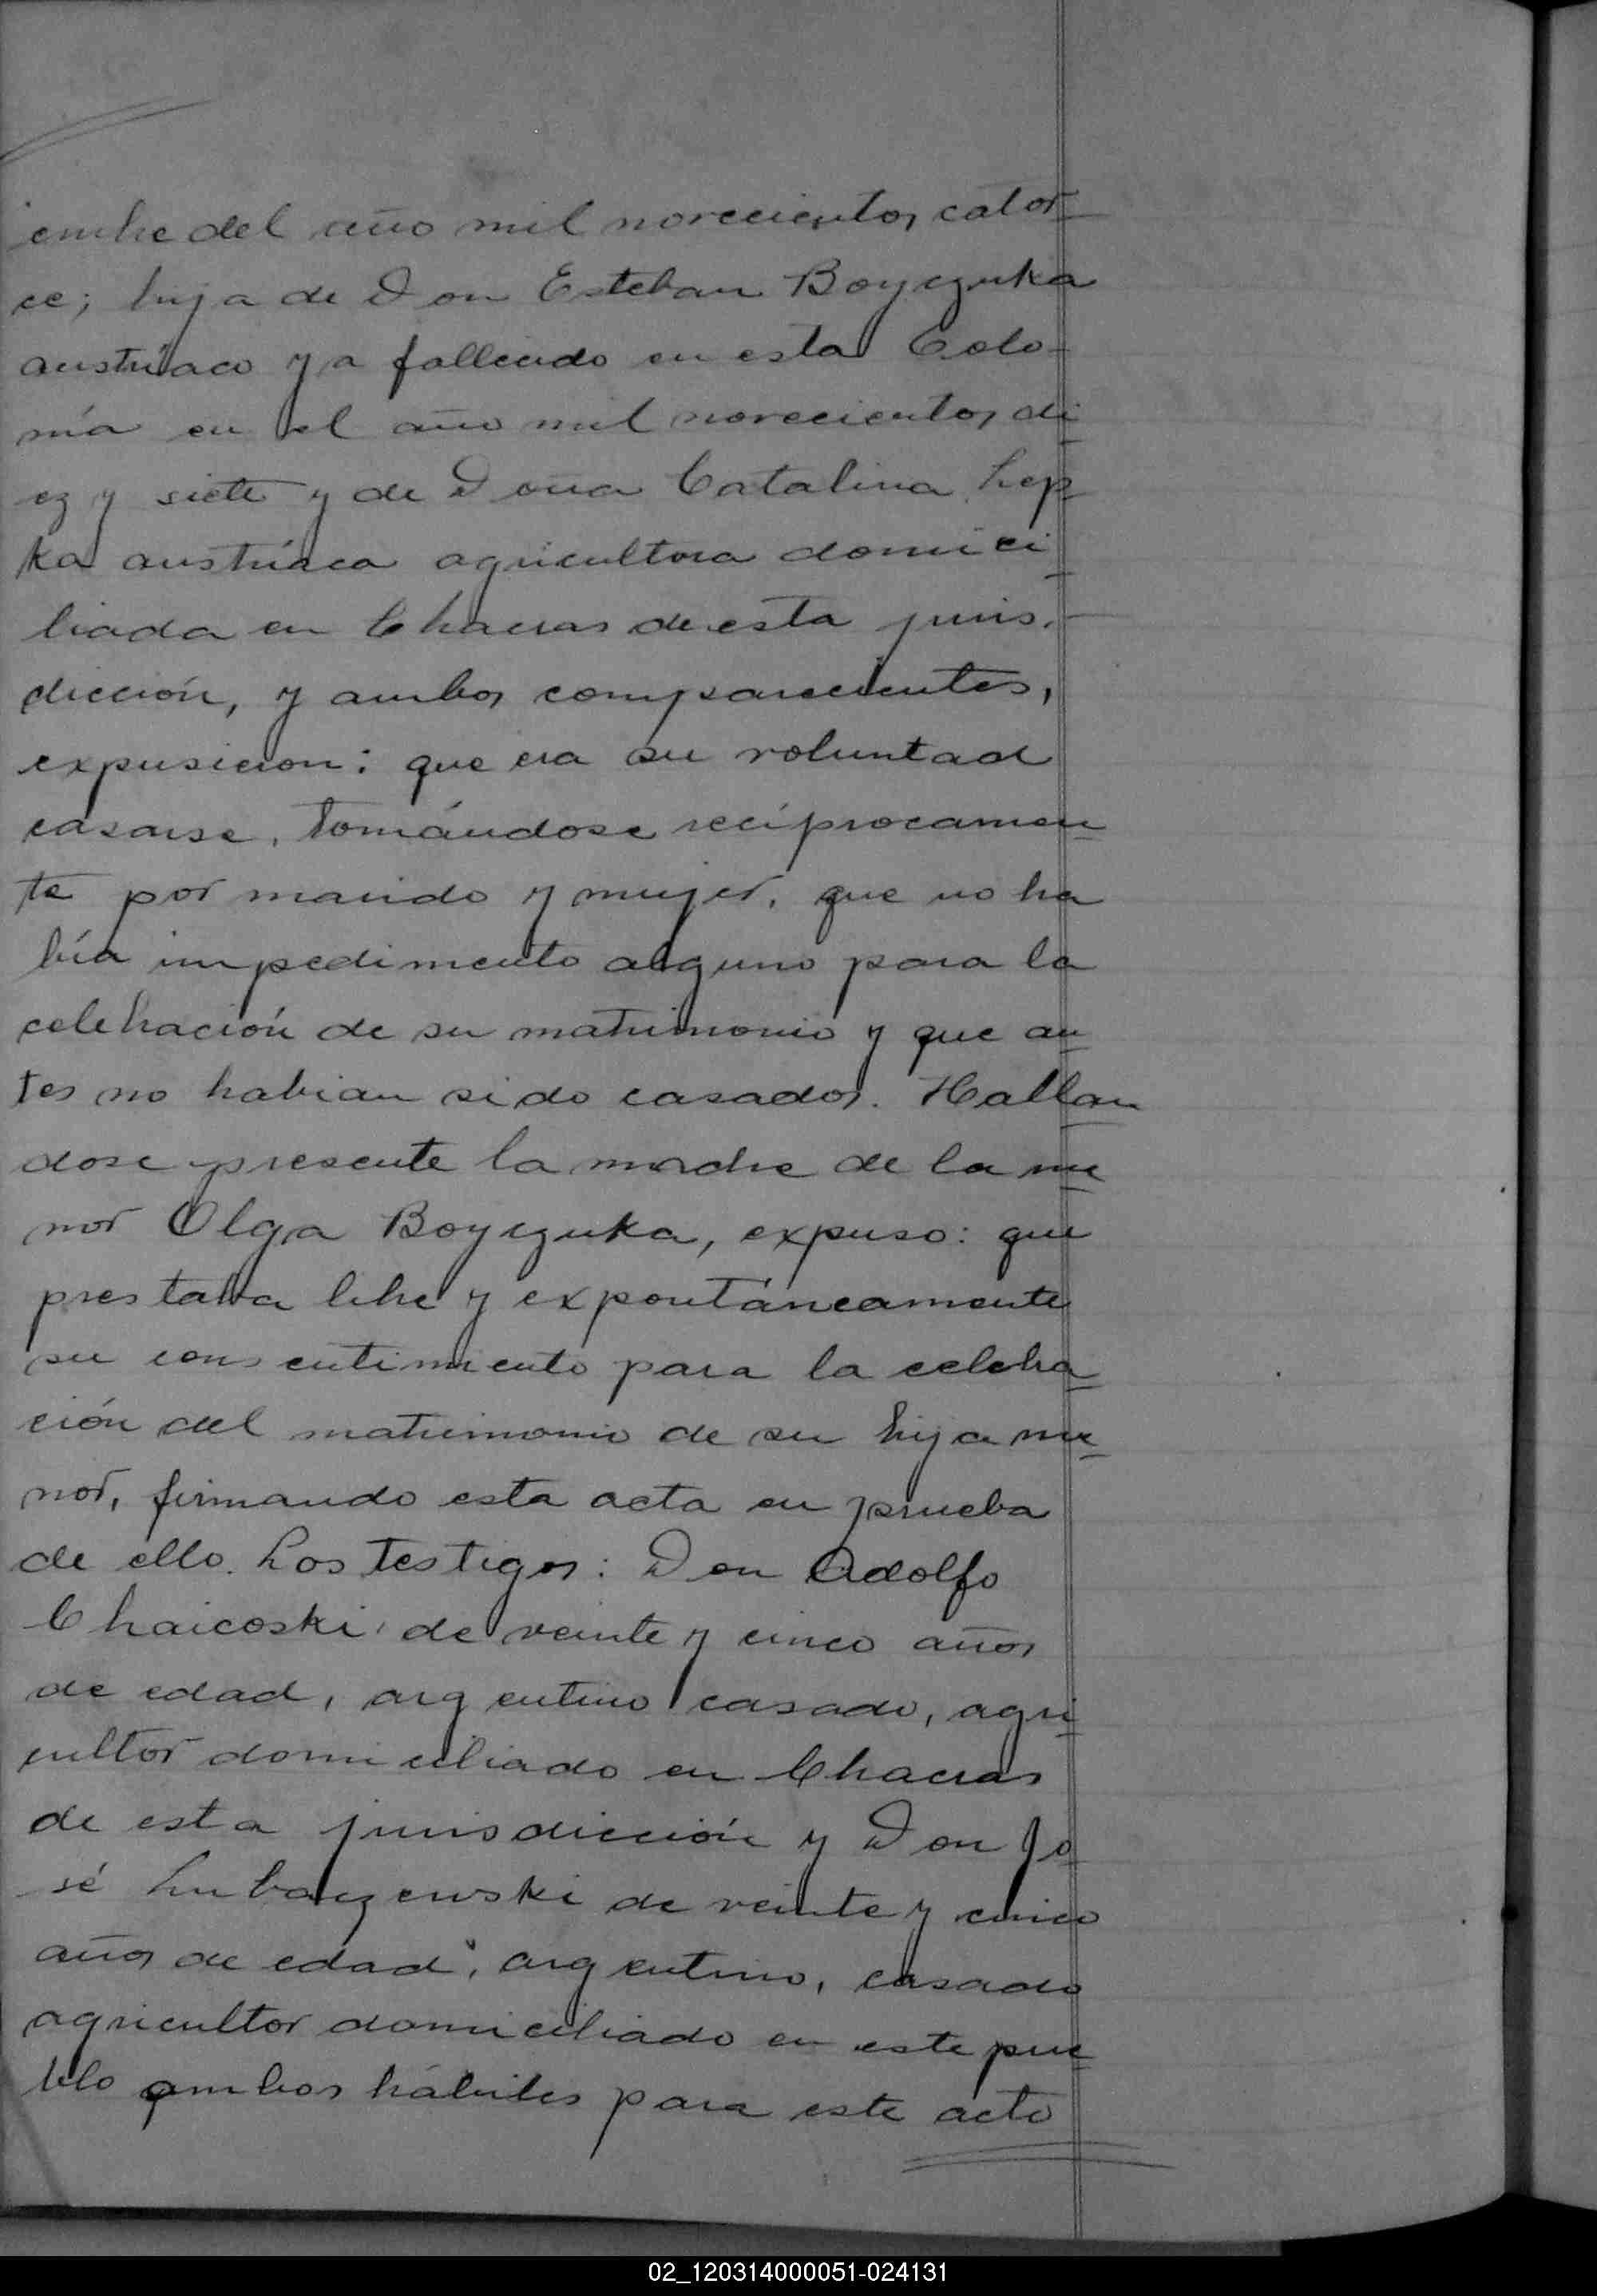 iembre del año mil novecientos cator
ce; hija de Don Esteban Boyczuka
austríaco ya fallecido en esta Colo-
nia en el año mil novecientos di
ez y siete y de Doña Catalina Lep
ka austríaca agricultora domici
liada en Chacras de esta juris-
dicción, y ambos comparecientes,
expusieron: que era su voluntad
casarse, tomándose recíprocamen
te por marido y mujer, que no ha
bía impedimento alguno para la
celebración de su matrimonio y que an
tes no habian sido casados. Hallan
dose presente la madre de la me
nor Olga Boyczuka, expuso: que
prestaba libre y expontáneamente
su consentimiento para la celebra
ción del matrimonio de su hija me
nor, firmando esta acta en prueba
de ello. Los testigos: Don Adolfo
Chaicoski de veinte y cinco años
de edad, argentino casado, agri
cultor domiciliado en Chacras
de esta jurisdicción y Don Jo
sé Lubaczewski de veinte y cinco
años de edad, argentino, casado
agricultor domiciliado en este pue
blo ambos hábiles para este acto
02_120314000051-024131